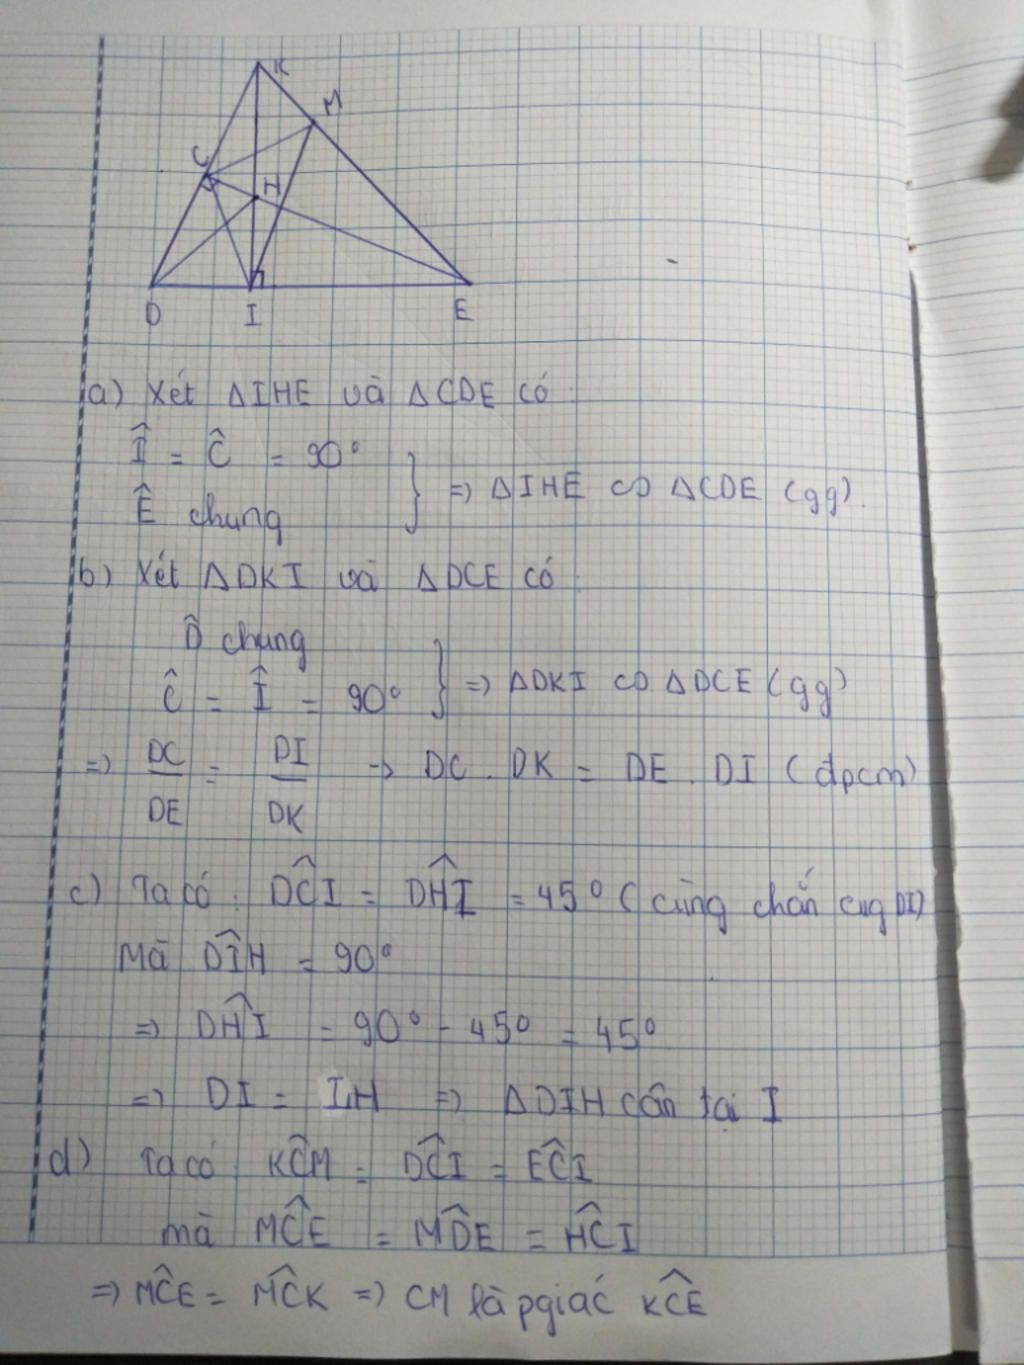 K
M
C
H
D I E
a) Xét ΔIHE và ΔCDE có :
Î = Ĉ = 90°
Ê chung } => ΔIHE ∽ ΔCDE (gg).
b) Xét ΔDKI và ΔDCE có
D̂ chung
Ĉ = Î = 90° } => ΔDKI ∽ ΔDCE (gg)
=> DC/DE = DI/DK → DC . DK = DE . DI (đpcm)
c) Ta có : DĈI = DĤI = 45° ( cùng chắn cug DI)
Mà DÎH = 90°
=> DĤI = 90° - 45° = 45°
=> DI = IH => ΔDIH cân tại I
d) Ta có KĈM = DĈI = EĈI
mà MĈE = MD̂E = HĈI
=> MĈE = MĈK => CM là pgiác KĈE